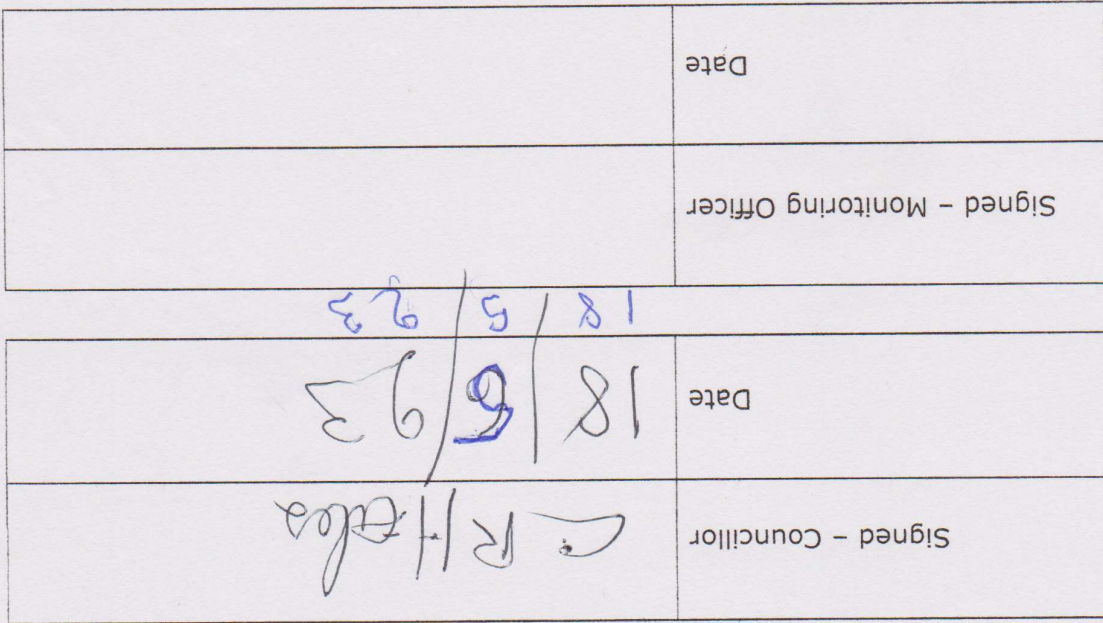 Signed – Councillor C R Hales
Date 18/5/23
18/5/23
Signed – Monitoring Officer
Date